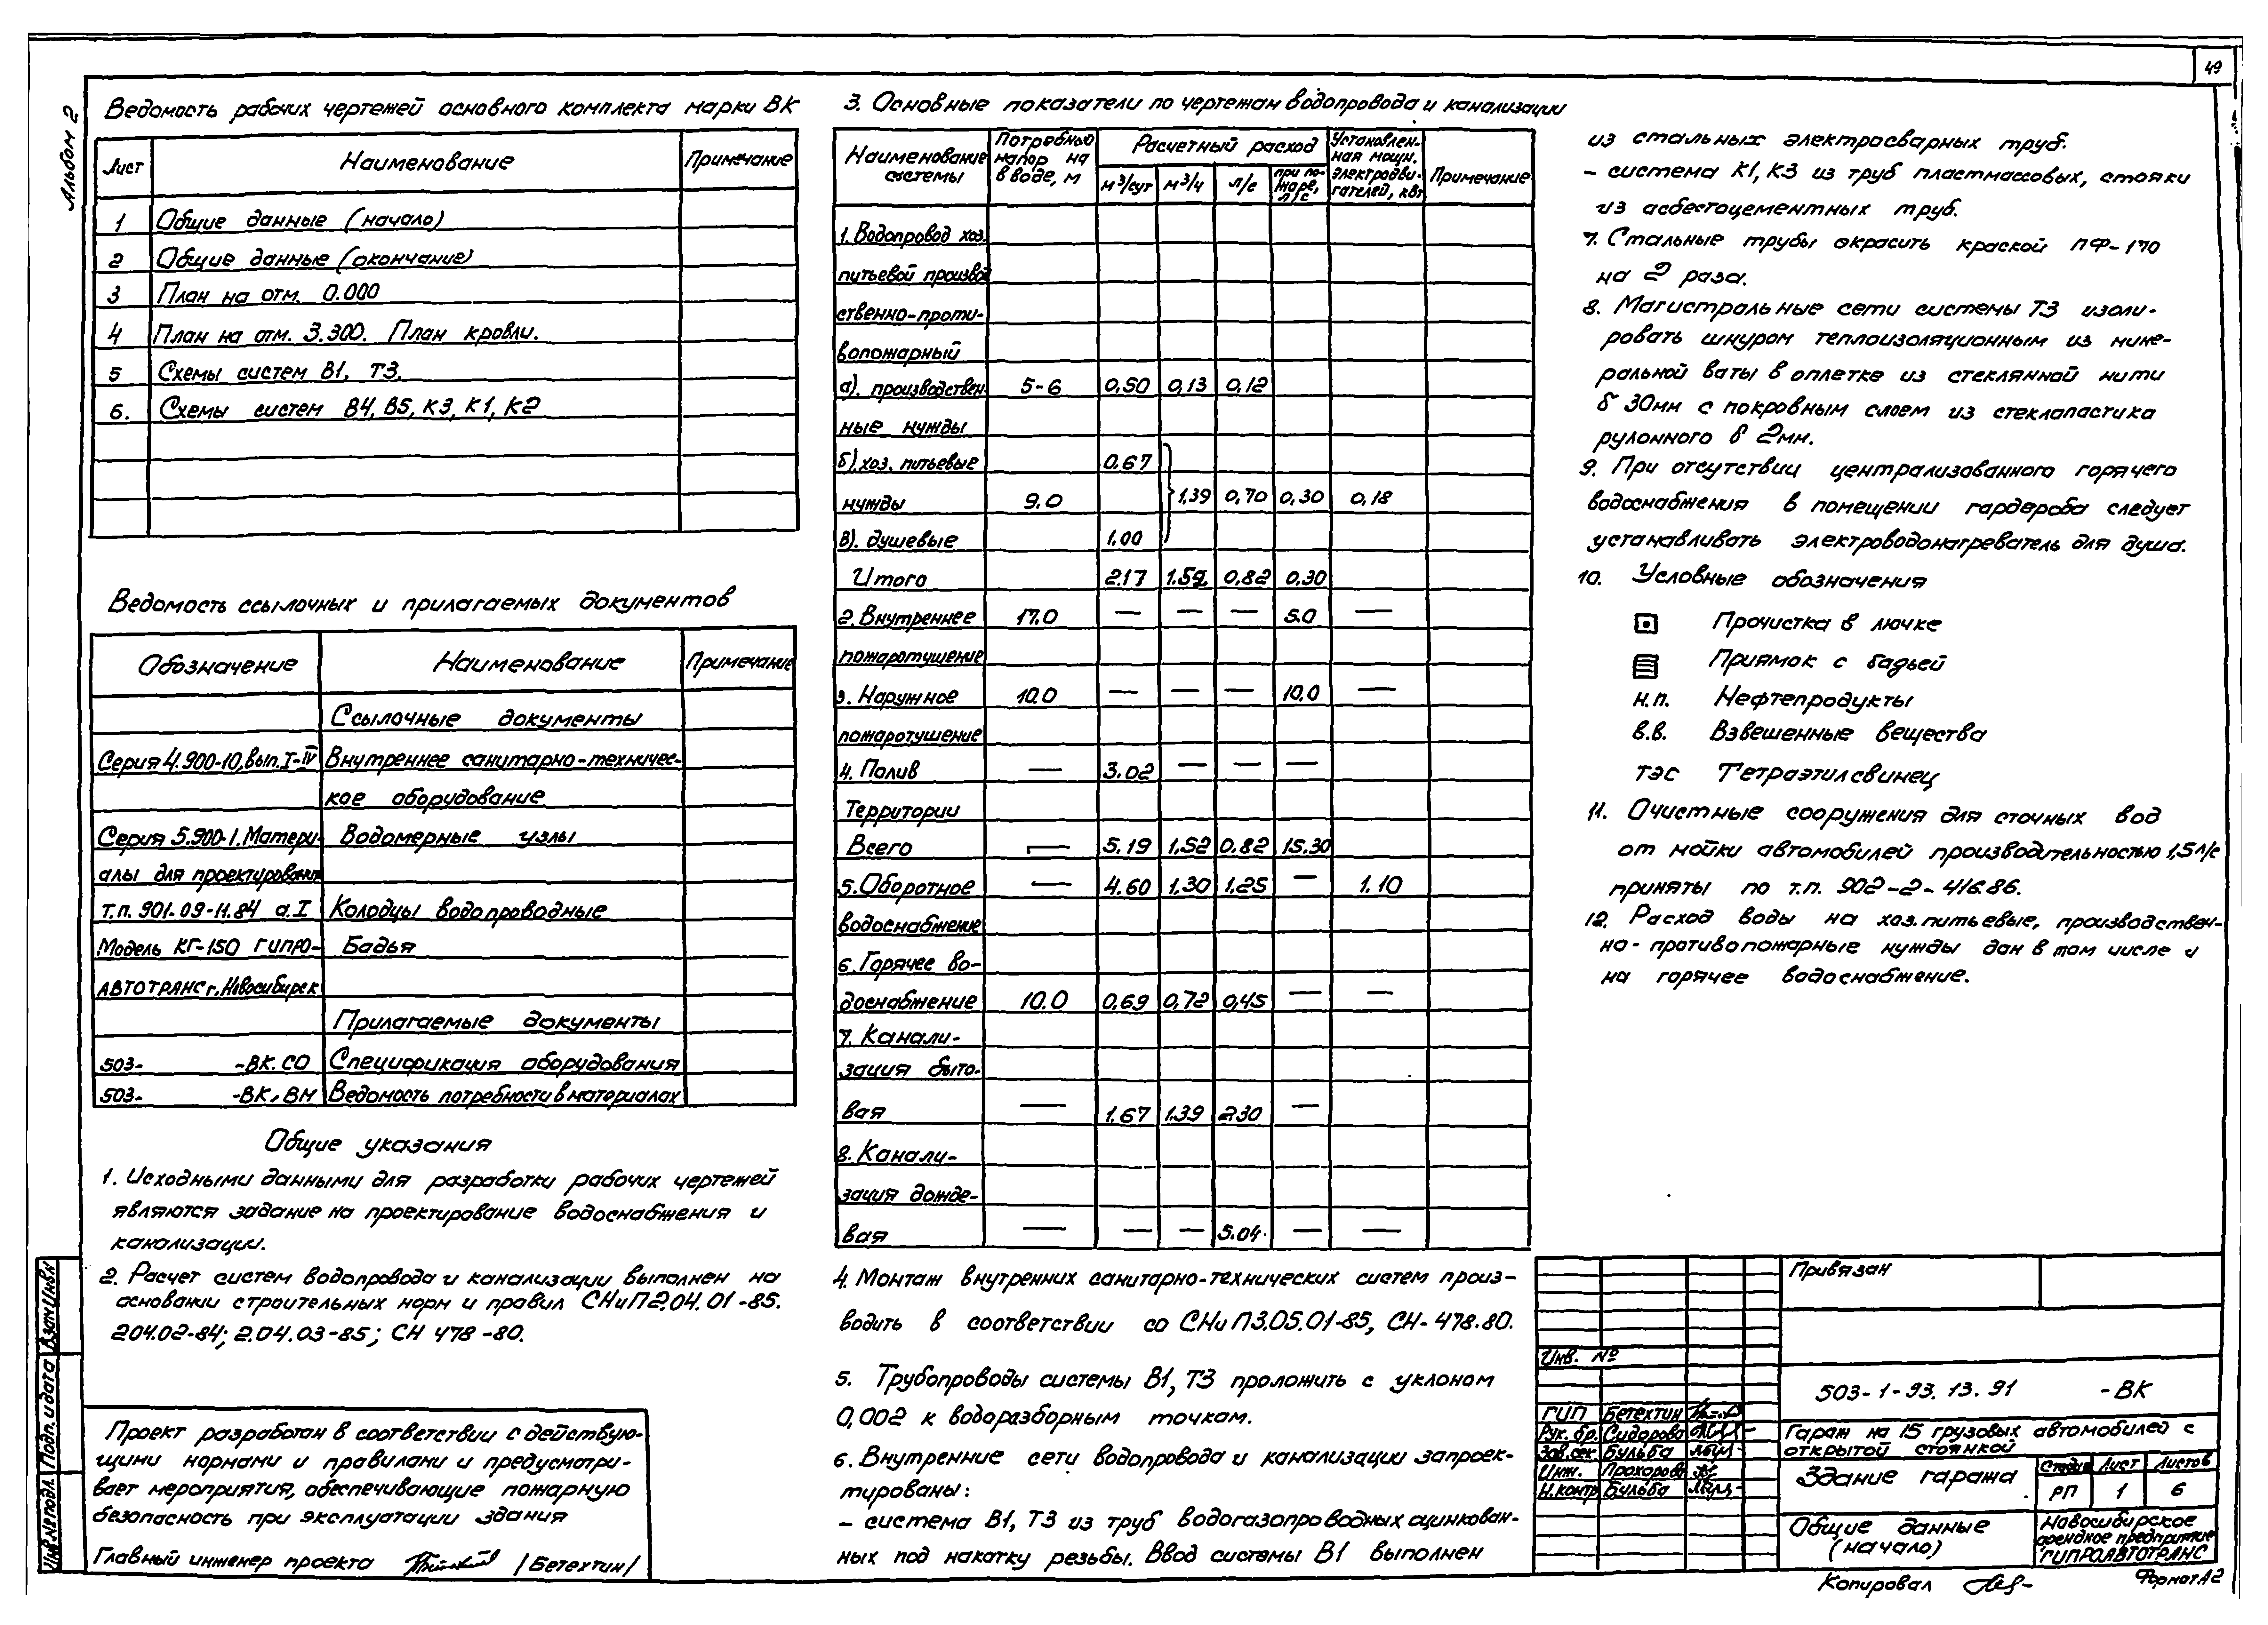 49
Альбом 2
Ведомость рабочих чертежей основного комплекта марки ВК
Лист Наименование Примечание
1 Общие данные (начало)
2 Общие данные (окончание)
3 План на отм. 0.000
4 План на отм. 3.300. План кровли.
5 Схемы систем В1, Т3.
6. Схемы систем В4, В5, К3, К1, К2
Ведомость ссылочных и прилагаемых документов
Обозначение Наименование Примечание
Ссылочные документы
Серия 4.900-10, вып. I-IV Внутреннее санитарно-техничес-
кое оборудование
Серия 5.900-1. Матери- Водомерные узлы
алы для проектирования
т.п. 901-09-11.84 а.I Колодцы водопроводные
Модель КГ-150 ГИПРО- Бадья
АВТОТРАНС г. Новосибирск
Прилагаемые документы
503- -ВК.СО Спецификация оборудования
503- -ВК.ВМ Ведомость потребности в материалах
Общие указания
1. Исходными данными для разработки рабочих чертежей
являются задание на проектирование водоснабжения и
канализации.
2. Расчет систем водопровода и канализации выполнен на
основании строительных норм и правил СНиП 2.04.01-85.
2.04.02-84; 2.04.03-85; СН 478-80.
Проект разработан в соответствии с действую-
щими нормами и правилами и предусматри-
вает мероприятия, обеспечивающие пожарную
безопасность при эксплуатации здания
Главный инженер проекта /Бетехтин/
3. Основные показатели по чертежам водопровода и канализации
Наименование системы Потребный напор на вводе, м Расчетный расход Установлен-ная мощн. электродви-гателей, квт Примечание
м³/сут м³/ч л/с при по-жаре, л/с
1. Водопровод хоз.
питьевой производ
ственно-проти-
вопожарный
а). производствен- 5-6 0,50 0,13 0,12
ные нужды
б). хоз. питьевые 0.67
нужды 9.0 1.39 0,70 0,30 0,18
в). душевые 1.00
Итого 2.17 1.52 0,82 0,30
2. Внутреннее 17.0 — — — 5.0 —
пожаротушение
3. Наружное 10.0 — — — 10.0 —
пожаротушение
4. Полив — 3.02 — — —
Территории
Всего — 5.19 1,52 0.82 15.30
5. Оборотное — 4.60 1,30 1.25 — 1.10
водоснабжение
6. Горячее во-
доснабжение 10.0 0,69 0,72 0,45 — —
7. Канали-
зация быто-
вая — 1.67 1.39 2.30 —
8. Канали-
зация дожде-
вая — — — 5.04 — —
4. Монтаж внутренних санитарно-технических систем произ-
водить в соответствии со СНиП 3.05.01-85, СН-478.80.
5. Трубопроводы системы В1, Т3 проложить с уклоном
0,002 к водоразборным точкам.
6. Внутренние сети водопровода и канализации запроек-
тированы:
- система В1, Т3 из труб водогазопроводных оцинкован-
ных под накатку резьбы. Ввод системы В1 выполнен
из стальных электросварных труб.
- система К1, К3 из труб пластмассовых, стояки
из асбестоцементных труб.
7. Стальные трубы окрасить краской ПФ-170
на 2 раза.
8. Магистральные сети системы Т3 изоли-
ровать шнуром теплоизоляционным из мине-
ральной ваты в оплетке из стеклянной нити
δ 30мм с покровным слоем из стеклапастика
рулонного δ 2мм.
9. При отсутствии централизованного горячего
водоснабжения в помещении гардероба следует
устанавливать электроводонагреватель для душа.
10. Условные обозначения
Прочистка в лючке
Приямок с бадьей
н.п. Нефтепродукты
в.в. Взвешенные вещества
тэс Тетраэтилсвинец
11. Очистные сооружения для сточных вод
от мойки автомобилей производительностью 1,5 л/с
приняты по т.п. 902-2-416.86.
12. Расход воды на хоз. питьевые, производствен-
но-противопожарные нужды дан в том числе и
на горячее водоснабжение.
Привязан
Инв. №
503-1-93.13.91 -ВК
ГИП Бетехтин
Рук. бр. Сидорова
Зав. сек. Бульба
Инж. Прохорова
Н.контр Бульба
Гараж на 15 грузовых автомобилей с
открытой стоянкой
Здание гаража
Стадия Лист Листов
РП 1 6
Общие данные
(начало)
Новосибирское
арендное предприятие
ГИПРОАВТОТРАНС
Копировал
Формат А2
Инв.№подл. Подп. и дата Взам.Инв.№